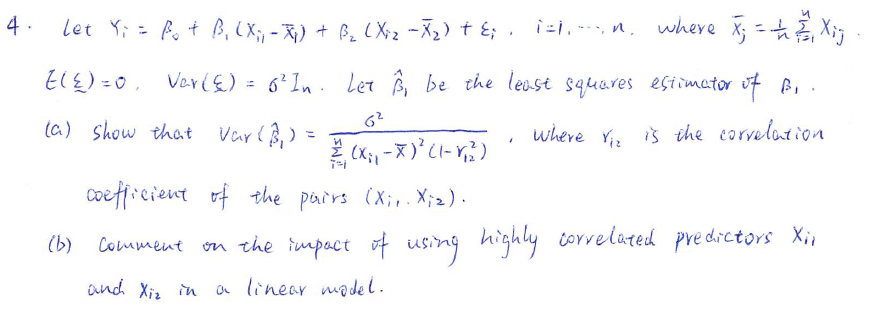 4. Let Yᵢ = β₀ + β₁ (Xᵢ₁ - X̄₁) + β₂ (Xᵢ₂ - X̄₂) + εᵢ , i=1, ..., n, where X̄ⱼ = 1/n Σᵢ₌₁ⁿ Xᵢⱼ .
E(ε) = 0, Var(ε) = σ² Iₙ. Let β̂₁ be the least squares estimator of β₁.
(a) Show that Var(β̂₁) = σ² / (Σᵢ₌₁ⁿ (Xᵢ₁ - X̄)² (1 - r₁₂²)) , where r₁₂ is the correlation
coefficient of the pairs (Xᵢ₁, Xᵢ₂).
(b) Comment on the impact of using highly correlated predictors Xᵢ₁
and Xᵢ₂ in a linear model.